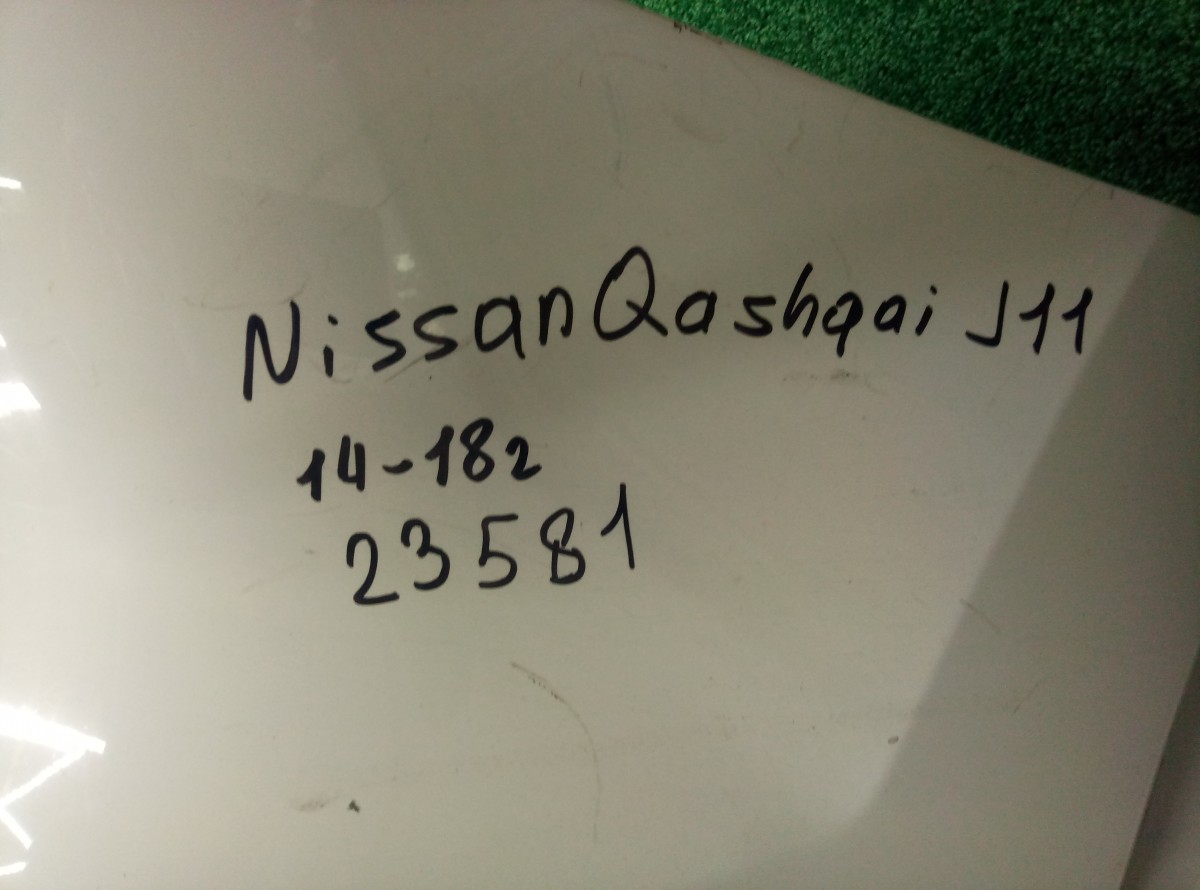 Nissan Qashqai J11
14-182
23581